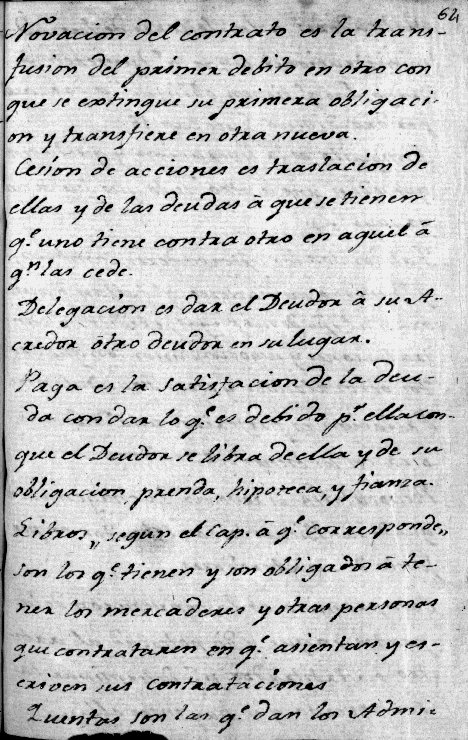 64
Novacion del contrato es la trans-
fusion del primer debito en otro con
que se extingue su primera obligaci-
on y transfiere en otra nueva.
Cesíon de acciones es traslacion de
ellas y de las deudas â que se tienen
q.e uno tiene contra otro en aquel â
q.n las cede.
Delegacion es dar el Deudor â su A-
creedor ôtro deudor en su lugar.
Paga es la satisfacion de la deu-
da con dar lo q.e es debido p.r ella con-
que el Deudor se libra de ella y de su
obligacion, prenda, hipoteca, y fianza.
Libros, segun el Cap. â q.e corresponde,,
son los q.e tienen y son obligados â te-
ner los mercaderes y otras personas
que contrataren en q.e asientan y es-
criven sus contrataciones
Quentas son las q.e dan los Admi-